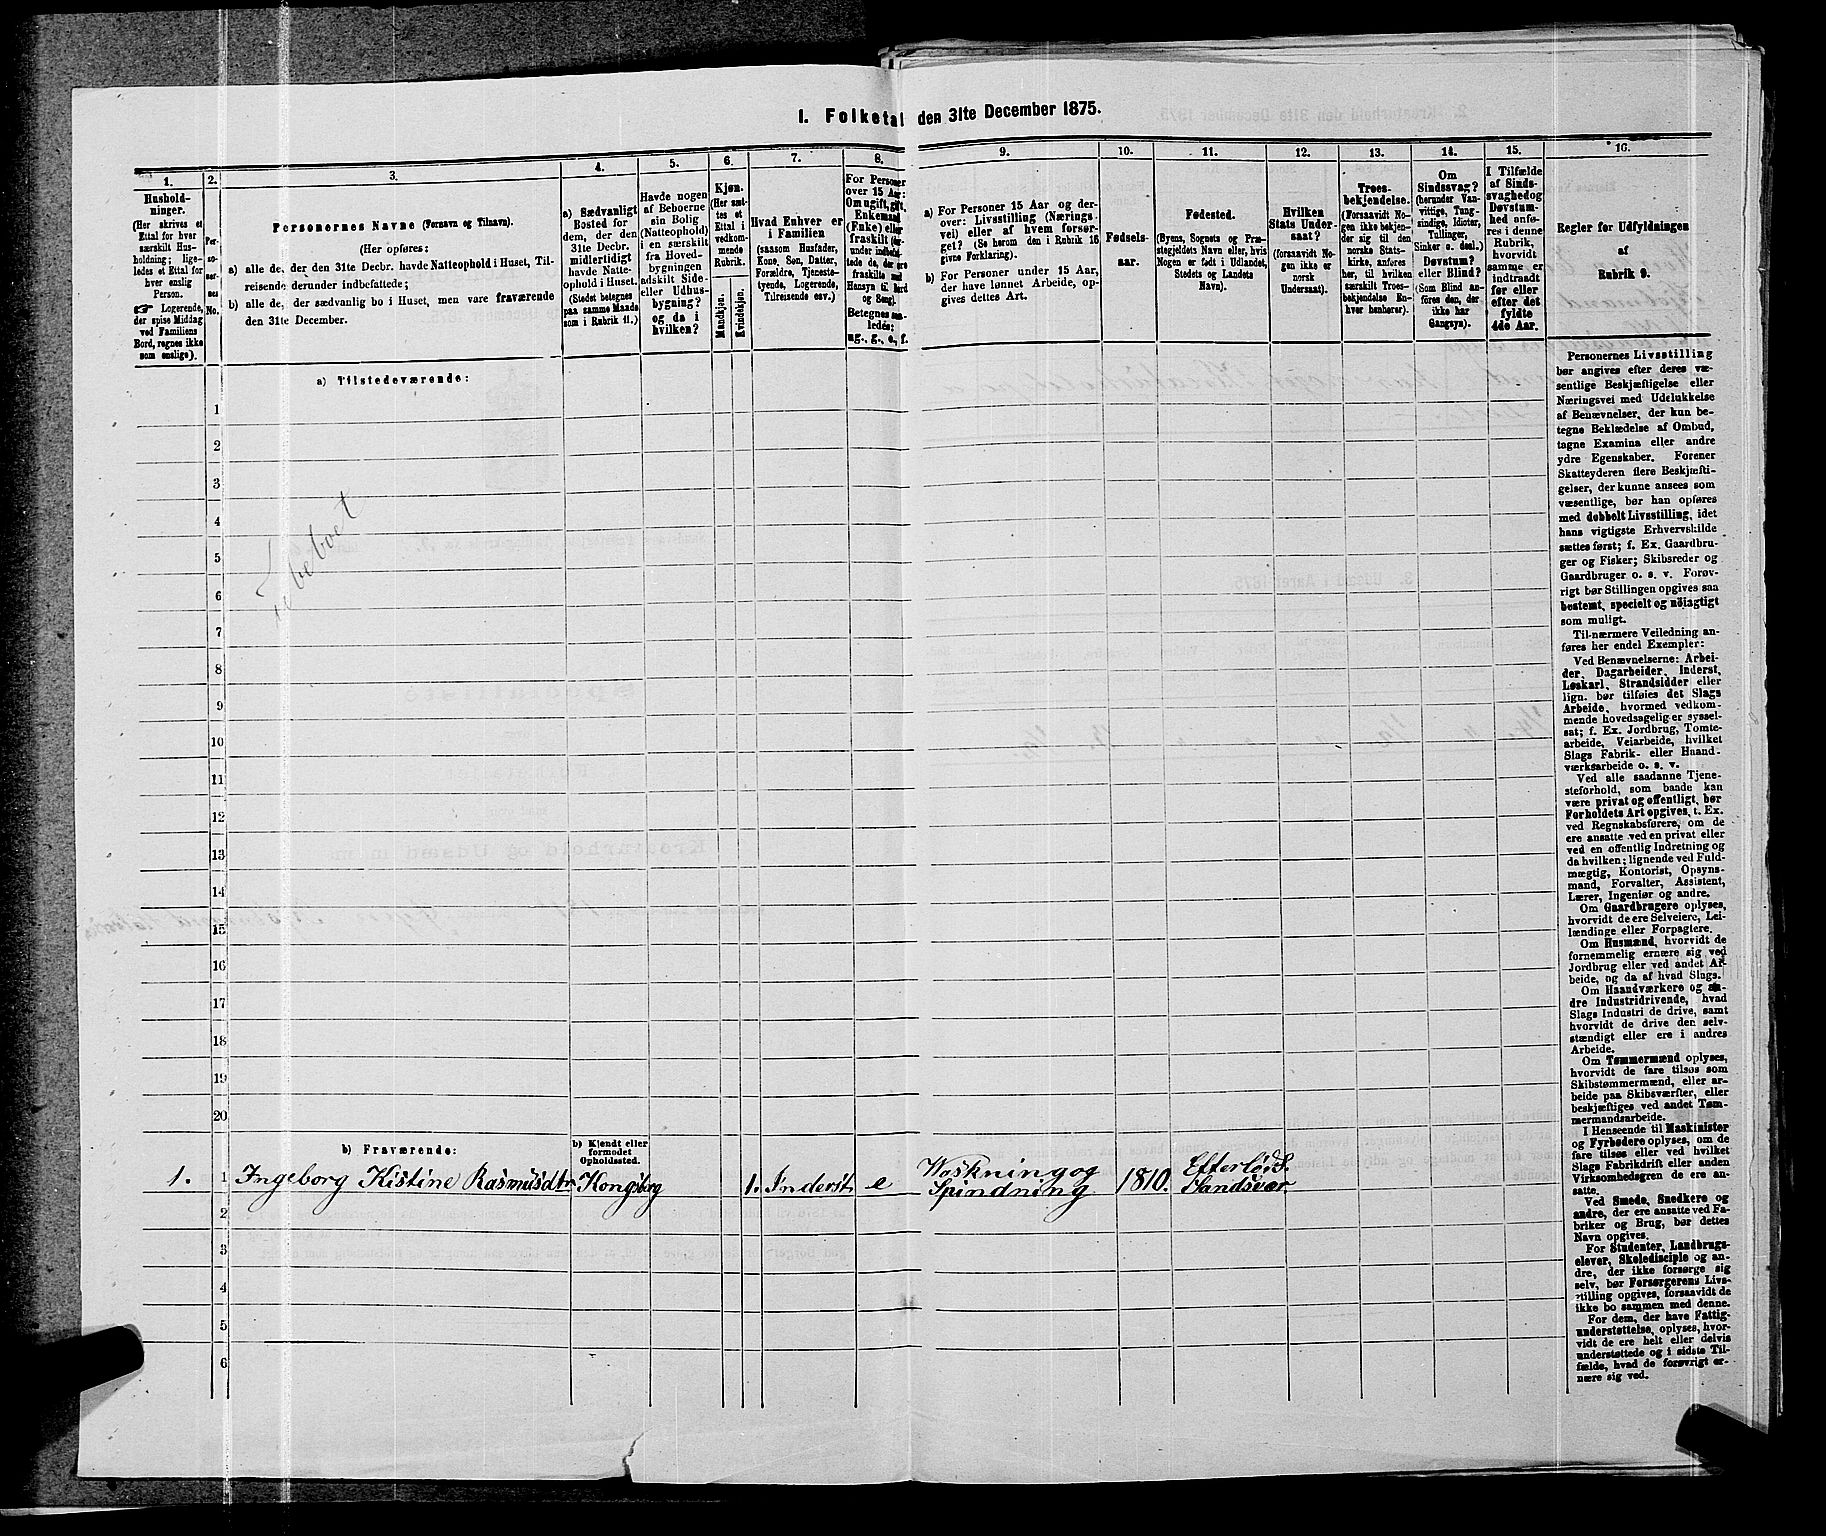 I. Folketal den 31te December 1875.
1.
2.
3.
4.
5.
6.
7.
8.
9.
10.
11.
12.
13.
14.
15.
16.
Hushold-
ninger.
(Her skrives et
Ettal for hver
særskilt Hus-
holdning; lige-
ledes et Ettal for
hver enslig
Person.
☛ Logerende,
der spise Middag
ved Familiens
Bord, regnes ikke
som enslige).
Per-
so-
ner-
nes
No.
Personernes Navne (Fornavn og Tilnavn).
(Her opføres:
a) alle de, der den 31te Decbr. havde Natteophold i Huset, Til-
reisende derunder indbefattede;
b) alle de, der sædvanlig bo i Huset, men vare fraværende
den 31te December.
a) Sædvanligt
Bosted for
dem, der den
31te Decbr.
midlertidigt
havde Natte-
ophold i Huset.
(Stedet betegnes
paa samme Maade
som i Rubrik 11.)
Havde nogen
af Beboerne
sin Bolig
(Natteophold)
i en særskilt
fra Hoved-
bygningen
adskilt Side-
eller Udhus-
bygning?
og da i
hvilken?
Kjøn.
(Her sæt-
tes et
Ettal i
vedkom-
mende
Rubrik.
Mandkjøn.
Kvindekjøn.
Hvad Enhver er
i Familien
(saasom Husfader,
Kone, Søn, Datter,
Forældre, Tjeneste-
tyende, Logerende,
Tilreisende osv.)
For Personer
over 15 Aar:
Om ugift, gift,
Enkemand
(Enke) eller
fraskilt (her-
under indbefat-
tede de, der ere
fraskilte med
Hensyn til Bord
og Seng).
Betegnes saa-
ledes:
ug., g., e., f.
a) For Personer 15 Aar og der-
over: Livsstilling (Nærings-
vei) eller af hvem forsør-
get? (Se herom den i Rubrik 16
givne Forklaring).
b) For Personer under 15 Aar,
der have lønnet Arbeide, op-
gives dettes Art.
Fødsels-
aar.
Fødested.
(Byens, Sognets og Præ-
stegjeldets Navn eller, hvis
Nogen er født i Udlandet,
Stedets og Landets
Navn).
Hvilken
Stats Under-
saat?
(forsaavidt No-
gen ikke er
norsk
Undersaat).
Troes-
bekjendelse.
(Forsaavidt No-
gen ikke bekjen-
der sig til den
norske Stats-
kirke, anføres
her, til hvilken
særskilt Troes-
bekjendelse En-
hver henhører).
Om
Sindssvag?
(herunder Van-
vittige, Tung-
sindige, Idioter,
Tullinger,
Sinker o. desl.)
Døvstum?
eller Blind?
(Som Blind an-
føres den, der
ikke har
Gangsyn).
I Tilfælde
af Sinds-
svaghed og
Døvstum-
hed anfø-
res i denne
Rubrik,
hvorvidt
samme er
indtraadt
før eller
efter det
fyldte
4de Aar.
Regler for Udfyldningen
af
Rubrik 9.
a) Tilstedeværende:
1
2
3
4
5
6
7
8
9
10
11
12
13
14
15
16
17
18
19
20
b) Fraværende:
b) Kjendt eller
formodet
Opholdssted.
1. 1 Ingeborg Kistine Rasmusdtr Kongsberg 1. Inderst e Waskning og Spindning 1810. Efterløds. Sandsvær.
2
3
4
5
6
Personernes Livsstilling
bør angives efter deres væ-
sentlige Beskjæftigelse eller
Næringsvei med Udelukkelse
af Benævnelser, der kun be-
tegne Beklædelse af Ombud,
tagne Examina eller andre
ydre Egenskaber. Forener
Skatteyderen flere Beskjæfti-
gelser, der kunne ansees som
væsentlige, bør han opføres
med dobbelt Livsstilling, idet
hans vigtigste Erhvervskilde
sættes først; f. Ex. Gaardbru-
ger og Fisker; Skibsreder og
Gaardbruger o. s. v. Forøv-
rigt bør Stillingen opgives saa
bestemt, specielt og nøiagtigt
som muligt.
Til nærmere Veiledning an-
føres her endel Exempler:
Ved Benævnelserne: Arbei-
der, Dagarbeider, Inderst,
Løskarl, Strandsidder eller
lign. bør tilføies det Slags
Arbeide, hvormed vedkom-
mende hovedsagelig er syssel-
sat; f. Ex. Jordbrug, Tomte-
arbeide, Veiarbeide, hvilket
Slags Fabrik- eller Haand-
værksarbeide o. s. v.
Ved alle saadanne Tjene-
steforhold, som baade kan
være privat og offentligt, bør
Forholdets Art opgives, t. Ex.
ved Regnskabsførere, om de
ere ansatte ved en privat eller
ved en offentlig Indretning og
da hvilken; lignende ved Fuld-
mægtig, Kontorist, Opsyns-
mand, Forvalter, Assistent,
Lærer, Ingeniør og andre.
Om Gaardbrugere oplyses,
hvorvidt de ere Selveiere, Lei-
lændinge eller Forpagtere.
Om Husmænd, hvorvidt de
fornemmelig ernære sig ved
Jordbrug eller ved andet Ar-
beide, og da af hvad Slags.
Om Haandværkere og an-
dre Industridrivende, hvad
Slags Industri de drive, samt
hvorvidt de drive den selv-
stændigt eller ere i andres
Arbeide.
Om Tømmermænd oplyses,
hvorvidt de fare tilsøs som
Skibstømmermænd, eller ar-
beide paa Skibsværfter, eller
beskjæftiges ved andet Tøm-
mermandsarbeide.
I Henseende til Maskinister
og Fyrbødere oplyses, om de
fare tilsøs eller ved hvilket
Slags Fabrikdrift eller anden
Virksomhedsgren de ere an-
satte.
Ved Smede, Snedkere og
andre, der ere ansatte ved Fa-
briker og Brug, bør dettes
Navn opgives.
For Studenter, Landbrugs-
elever, Skoledisciple og an-
dre, der ikke forsørge sig
selv, bør Forsørgerens Livs-
stilling opgives, forsaavidt de
ikke bo sammen med denne.
For dem, der have Fattig-
understøttelse, oplyses, hvor-
vidt de ere helt eller delvis
understøttede og i sidste Til-
fælde, hvad de forøvrigt er-
nære sig ved.